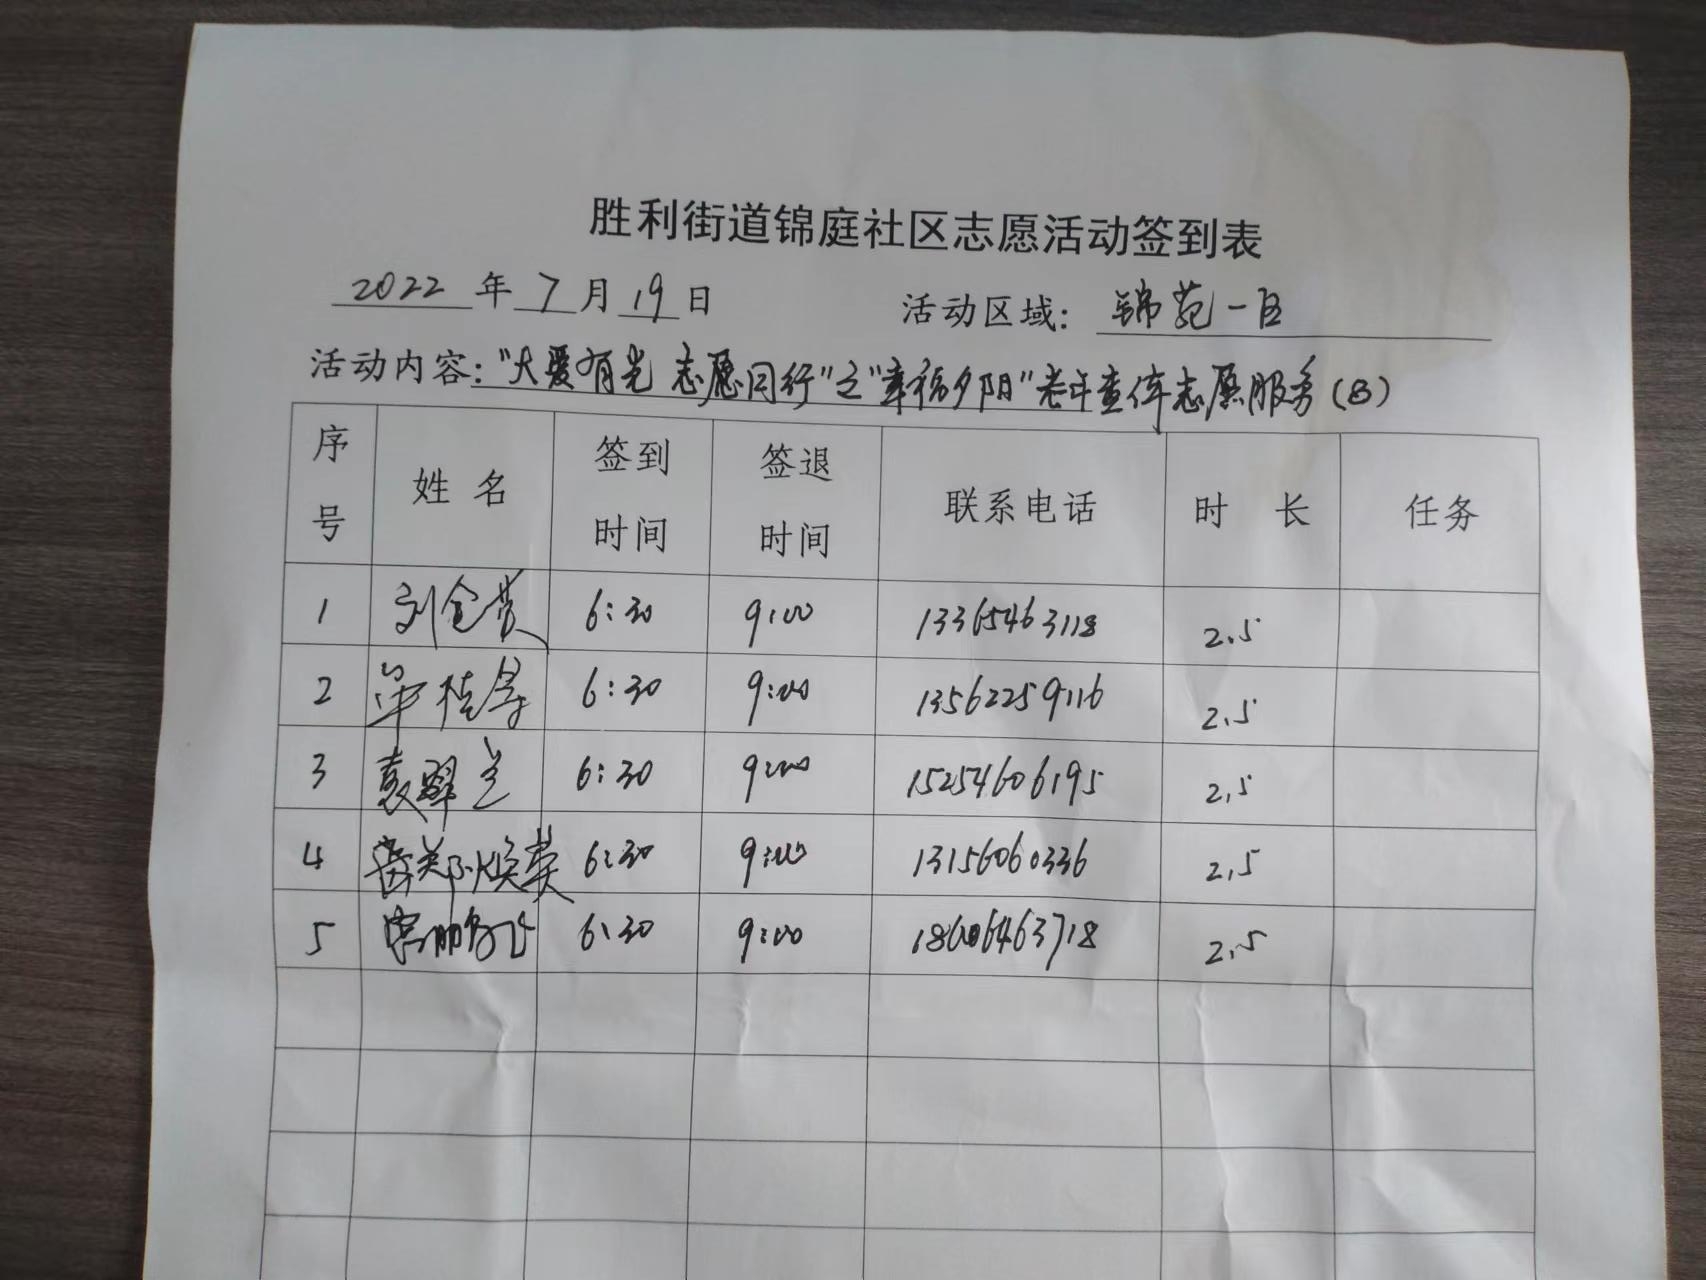 胜利街道锦庭社区志愿活动签到表
2022 年 7 月 19 日 活动区域: 锦苑一区
活动内容:"大爱有光 志愿同行"之"幸福夕阳"老年查体志愿服务(B)
序号 姓名 签到时间 签退时间 联系电话 时长 任务
1 刘金 6:30 9:00 13365463118 2.5
2 单桂 6:30 9:00 13562259116 2.5
3 袁翠兰 6:30 9:00 15254606195 2.5
4 郑焕英 6:30 9:00 13156060336 2.5
5 6:30 9:00 18606463718 2.5